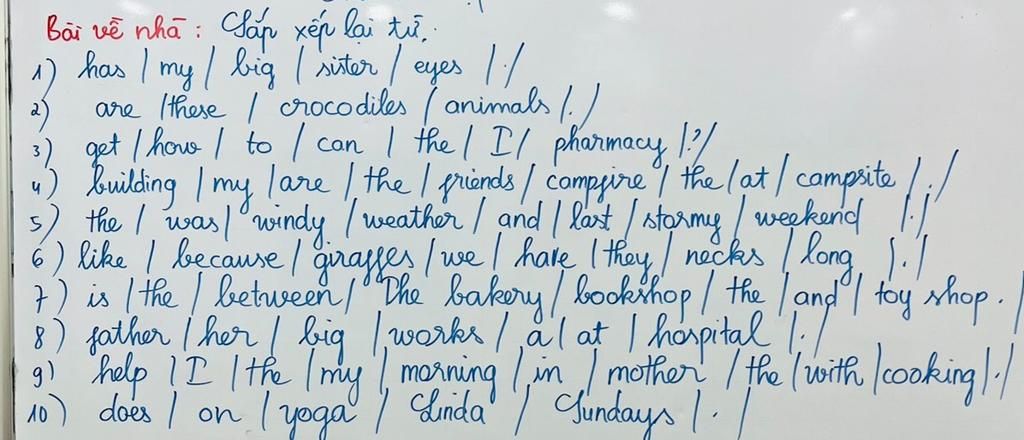 Bài về nhà : Sắp xếp lại từ.
1) has / my / big / sister / eyes / . /
2) are / these / crocodiles / animals / . /
3) get / how / to / can / the / I / pharmacy / ? /
4) building / my / are / the / friends / campfire / the / at / campsite / . /
5) the / was / windy / weather / and / last / stormy / weekend / . /
6) like / because / giraffes / we / have / they / necks / long / . /
7) is / the / between / The bakery / bookshop / the / and / toy shop . /
8) father / her / big / works / a / at / hospital / . /
9) help / I / the / my / morning / in / mother / the / with / cooking / . /
10) does / on / yoga / Linda / Sundays / . /